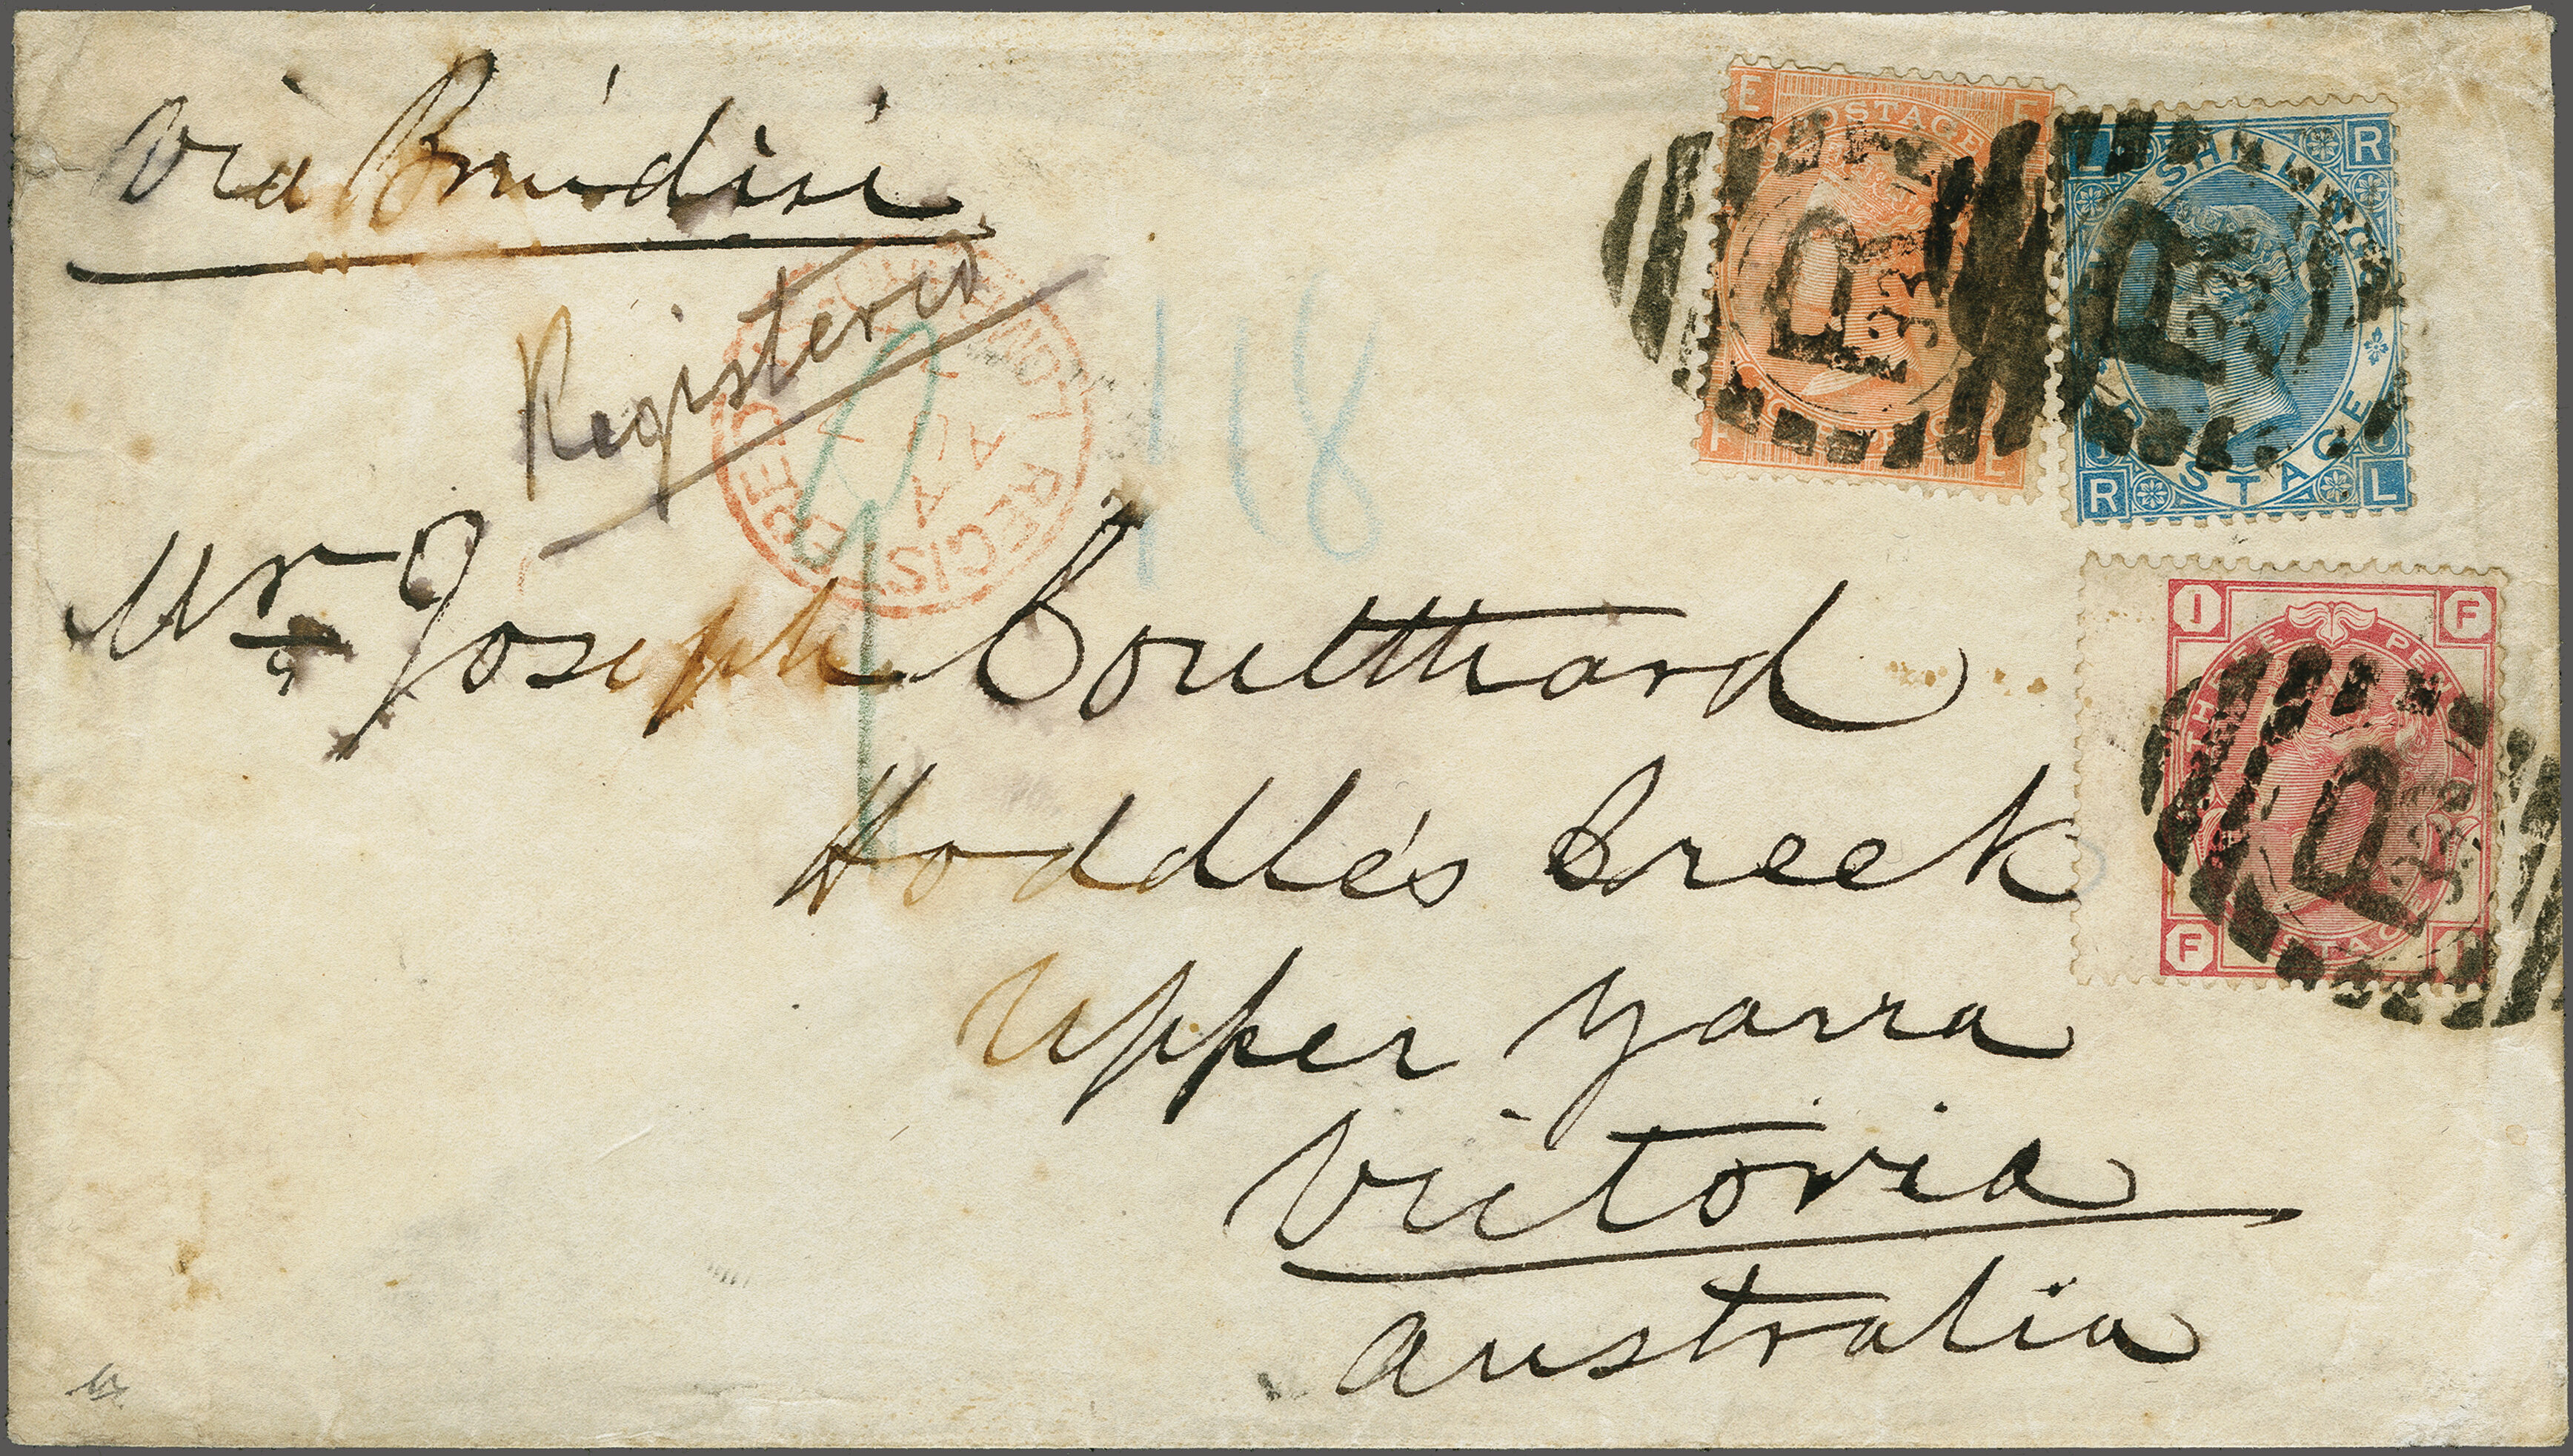 via Brindisi
Registered
118
Mr Joseph Coutthard
Hoddle's Creek
Upper Yarra
Victoria
Australia
REGISTERED
LONDON
AU
A
E
POSTAGE
F
L
D
L R
SHILLINGS
POSTAGE
R L
D
I F
THREE PENCE
POSTAGE
F I
D